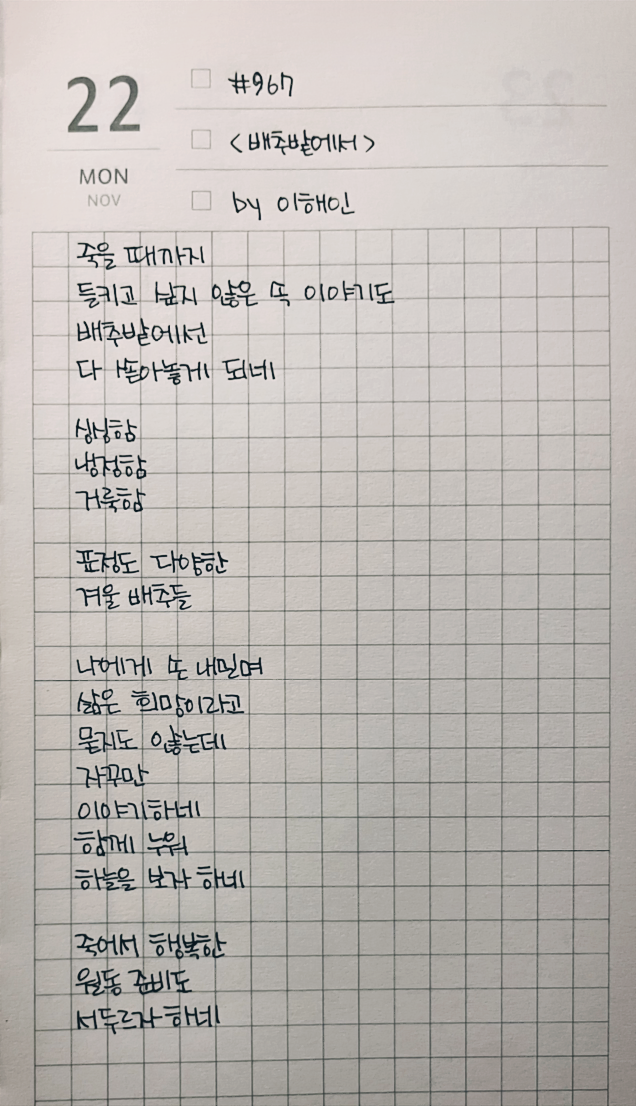 22
#967
<배추밭에서>
MON
NOV
by 이해인
죽을 때까지
들키고 싶지 않은 속 이야기도
배추밭에선
다 쏟아놓게 되네
싱싱함
냉정함
거룩함
표정도 다양한
겨울 배추들
나에게 손 내밀며
삶은 희망이라고
묻지도 않는데
자꾸만
이야기하네
함께 누워
하늘을 보자 하네
죽어서 행복한
월동 준비도
서두르자 하네